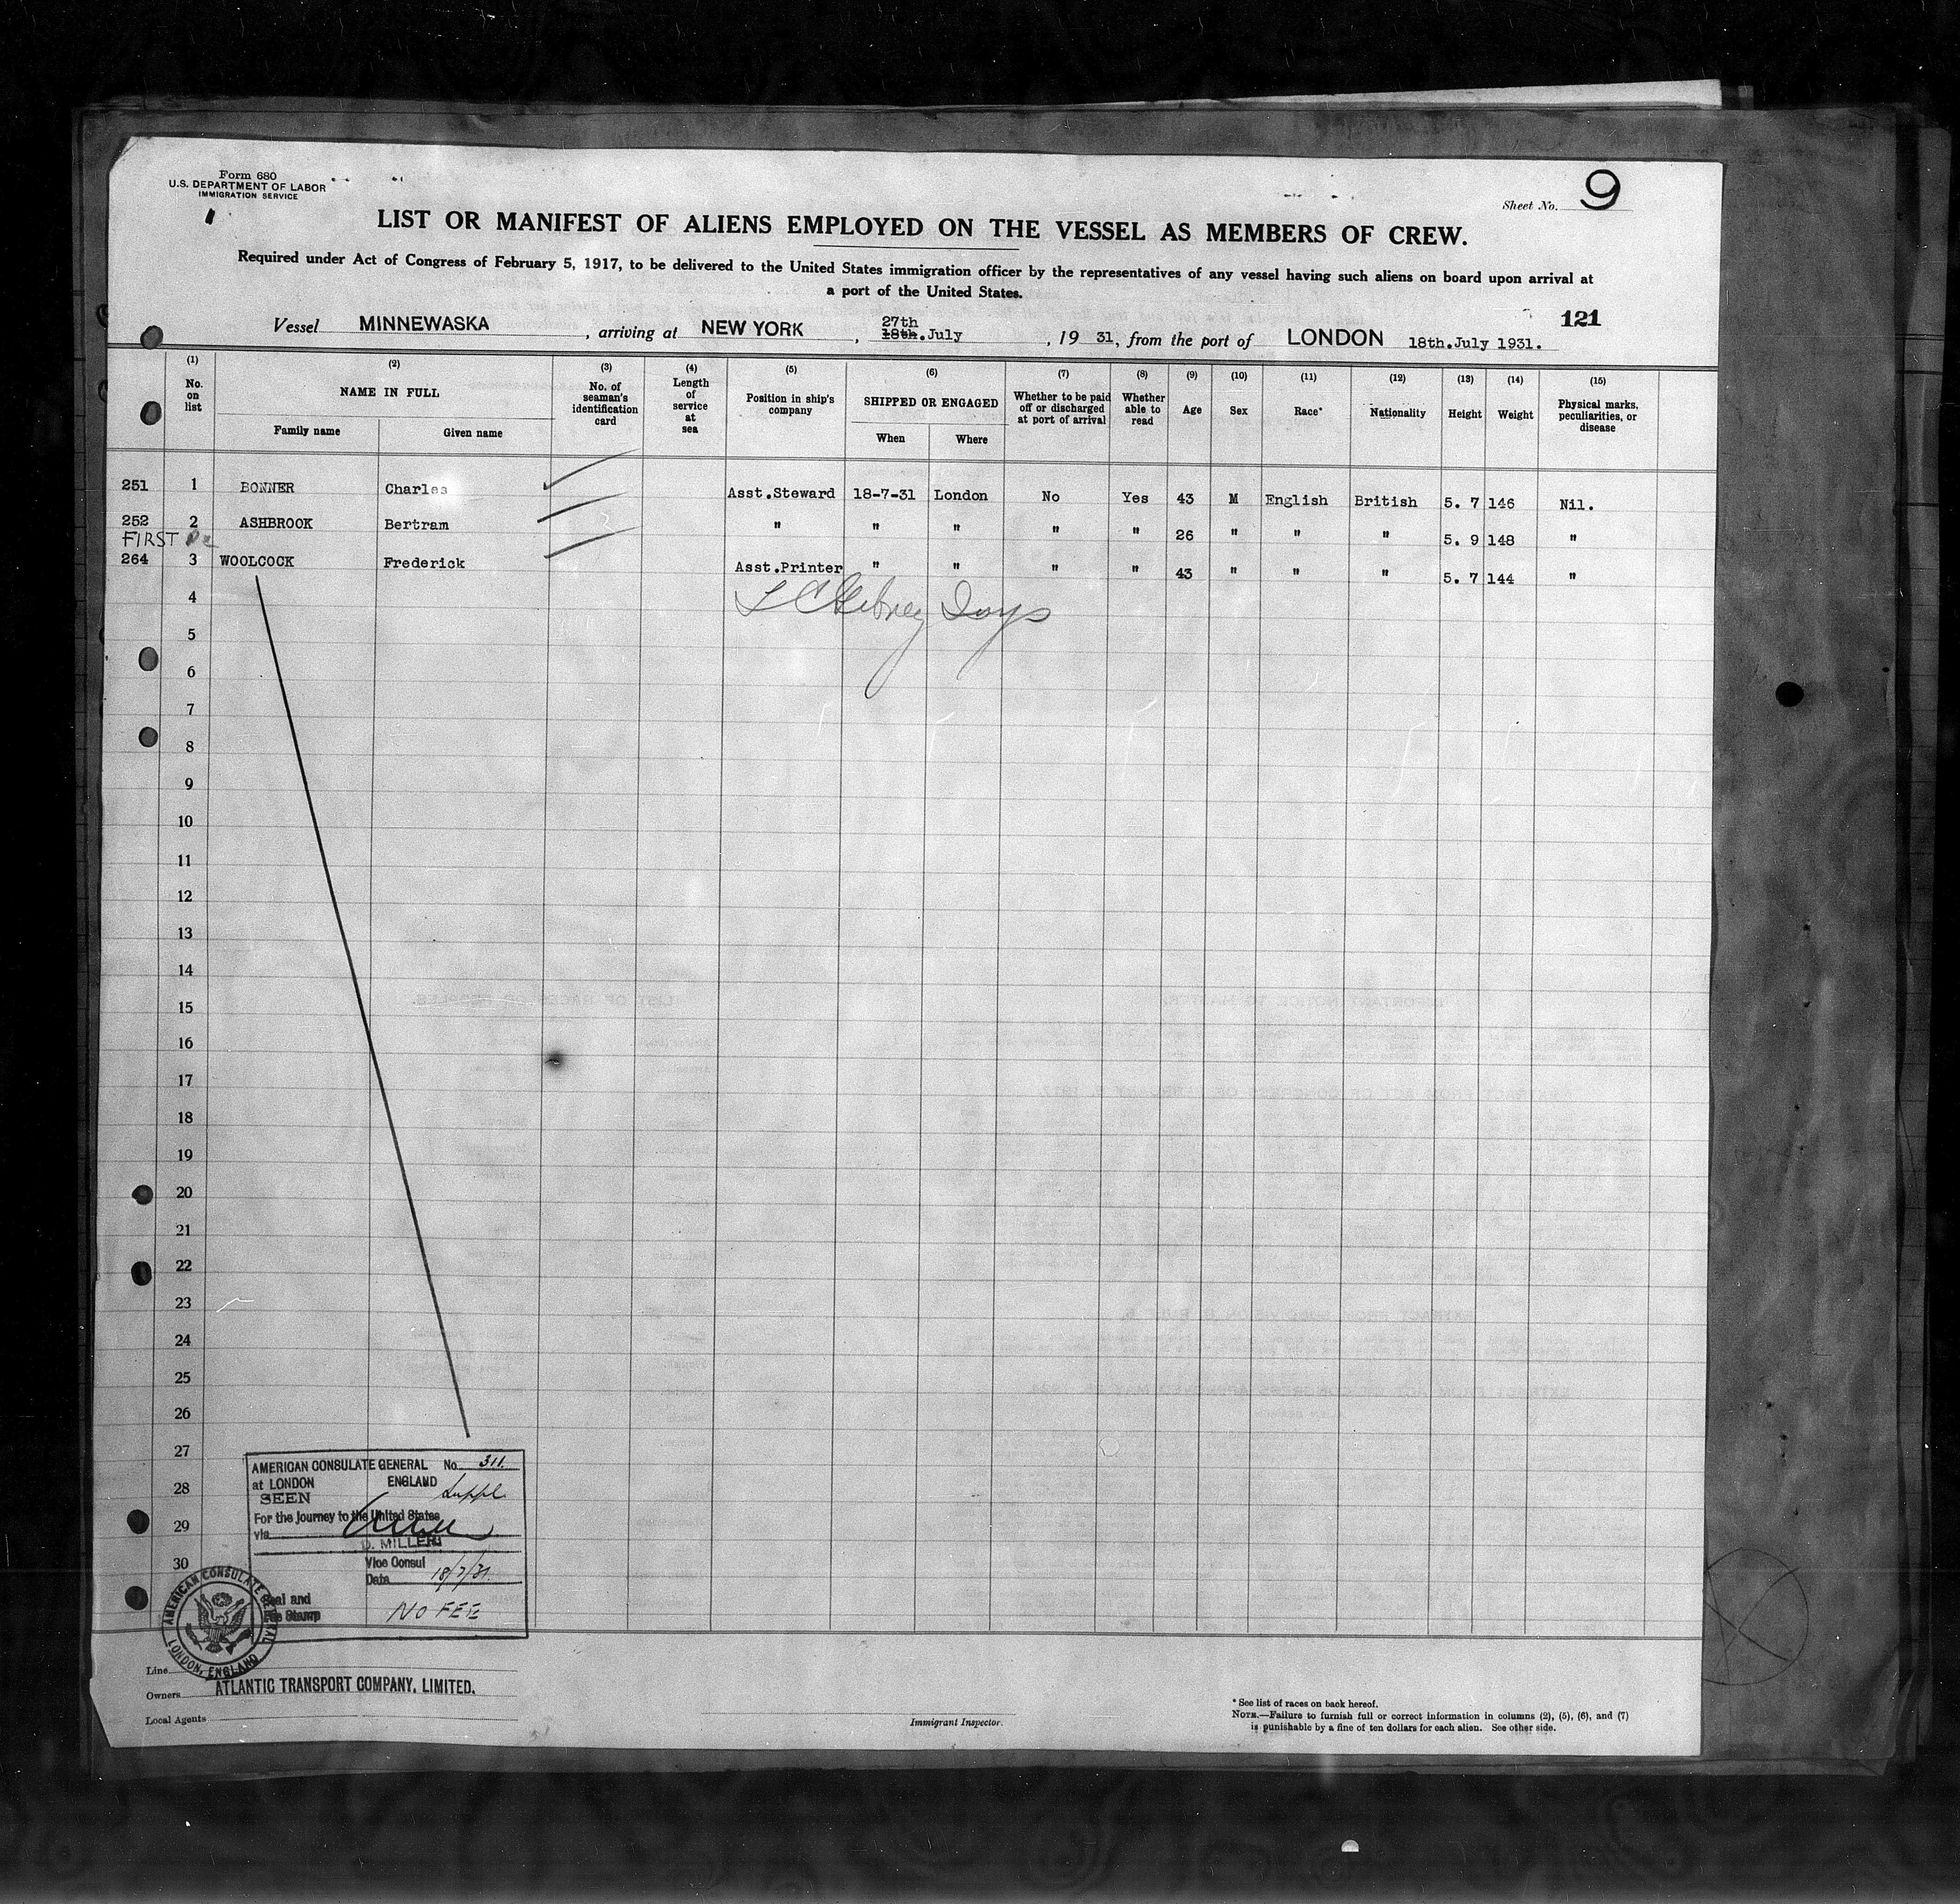 Form 680
U.S. DEPARTMENT OF LABOR
IMMIGRATION SERVICE
Sheet No. 9
LIST OR MANIFEST OF ALIENS EMPLOYED ON THE VESSEL AS MEMBERS OF CREW.
Required under Act of Congress of February 5, 1917, to be delivered to the United States immigration officer by the representatives of any vessel having such aliens on board upon arrival at
a port of the United States.
121
27th
Vessel MINNEWASKA, arriving at NEW YORK, 18th.July, 1931, from the port of LONDON 18th.July 1931.
(1) (2) (3) (4) (5) (6) (7) (8) (9) (10) (11) (12) (13) (14) (15)
No. on list NAME IN FULL Family name Given name No. of seaman's identification card Length of service at sea Position in ship's company SHIPPED OR ENGAGED When Where Whether to be paid off or discharged at port of arrival Whether able to read Age Sex Race* Nationality Height Weight Physical marks, peculiarities, or disease
251 1 BONNER Charles Asst.Steward 18-7-31 London No Yes 43 M English British 5. 7 146 Nil.
252 2 ASHBROOK Bertram " " " " " 26 " " " 5. 9 148 "
FIRST
264 3 WOOLCOCK Frederick Asst.Printer " " " " 43 " " " 5. 7 144 "
4
5
6
7
8
9
10
11
12
13
14
15
16
17
18
19
20
21
22
23
24
25
26
27
28
29
30
AMERICAN CONSULATE GENERAL No. 311.
at LONDON ENGLAND Suppl.
SEEN
For the Journey to the United States
via
D. MILLER
Vice Consul
Date 18/7/31
Seal and
Fee Stamp
NO FEE
AMERICAN CONSULATE GENERAL LONDON, ENGLAND
Line
Owners ATLANTIC TRANSPORT COMPANY, LIMITED.
Local Agents
Immigrant Inspector.
* See list of races on back hereof.
NOTE.—Failure to furnish full or correct information in columns (2), (5), (6), and (7)
is punishable by a fine of ten dollars for each alien. See other side.